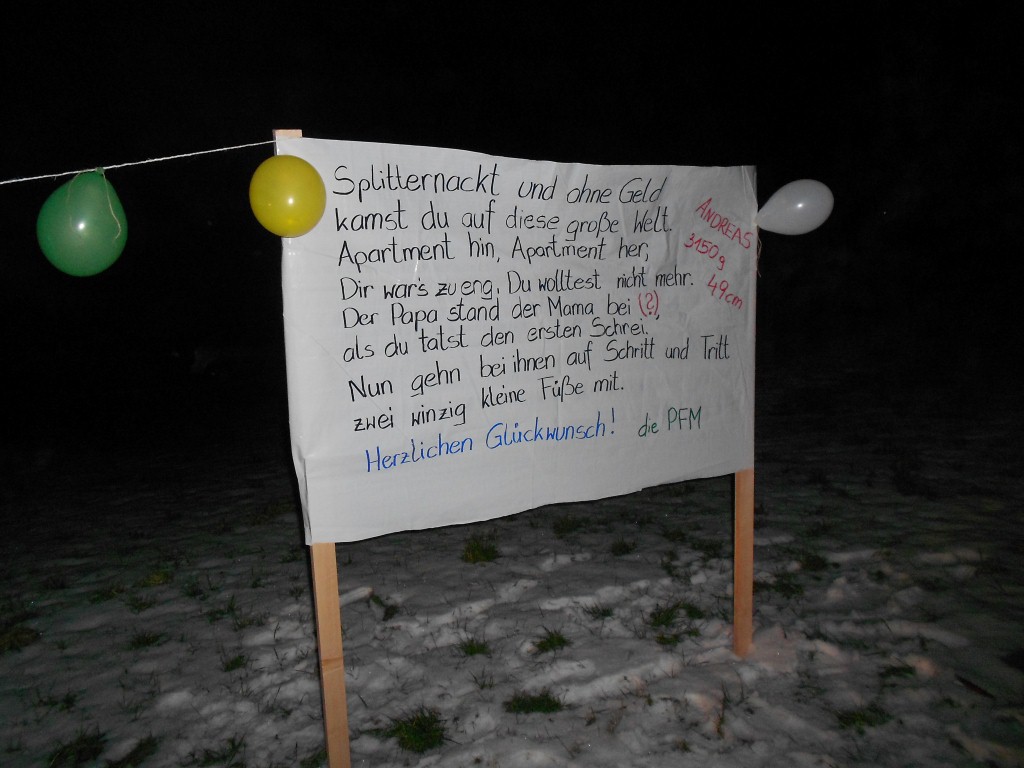 Splitternackt und ohne Geld
kamst du auf diese große Welt.
Apartment hin, Apartment her,
Dir war's zu eng, Du wolltest nicht mehr.
Der Papa stand der Mama bei (?),
als du tatst den ersten Schrei.
Nun gehn bei ihnen auf Schritt und Tritt
zwei winzig kleine Füße mit.
Herzlichen Glückwunsch! die PFM
ANDREAS
3150g
49cm